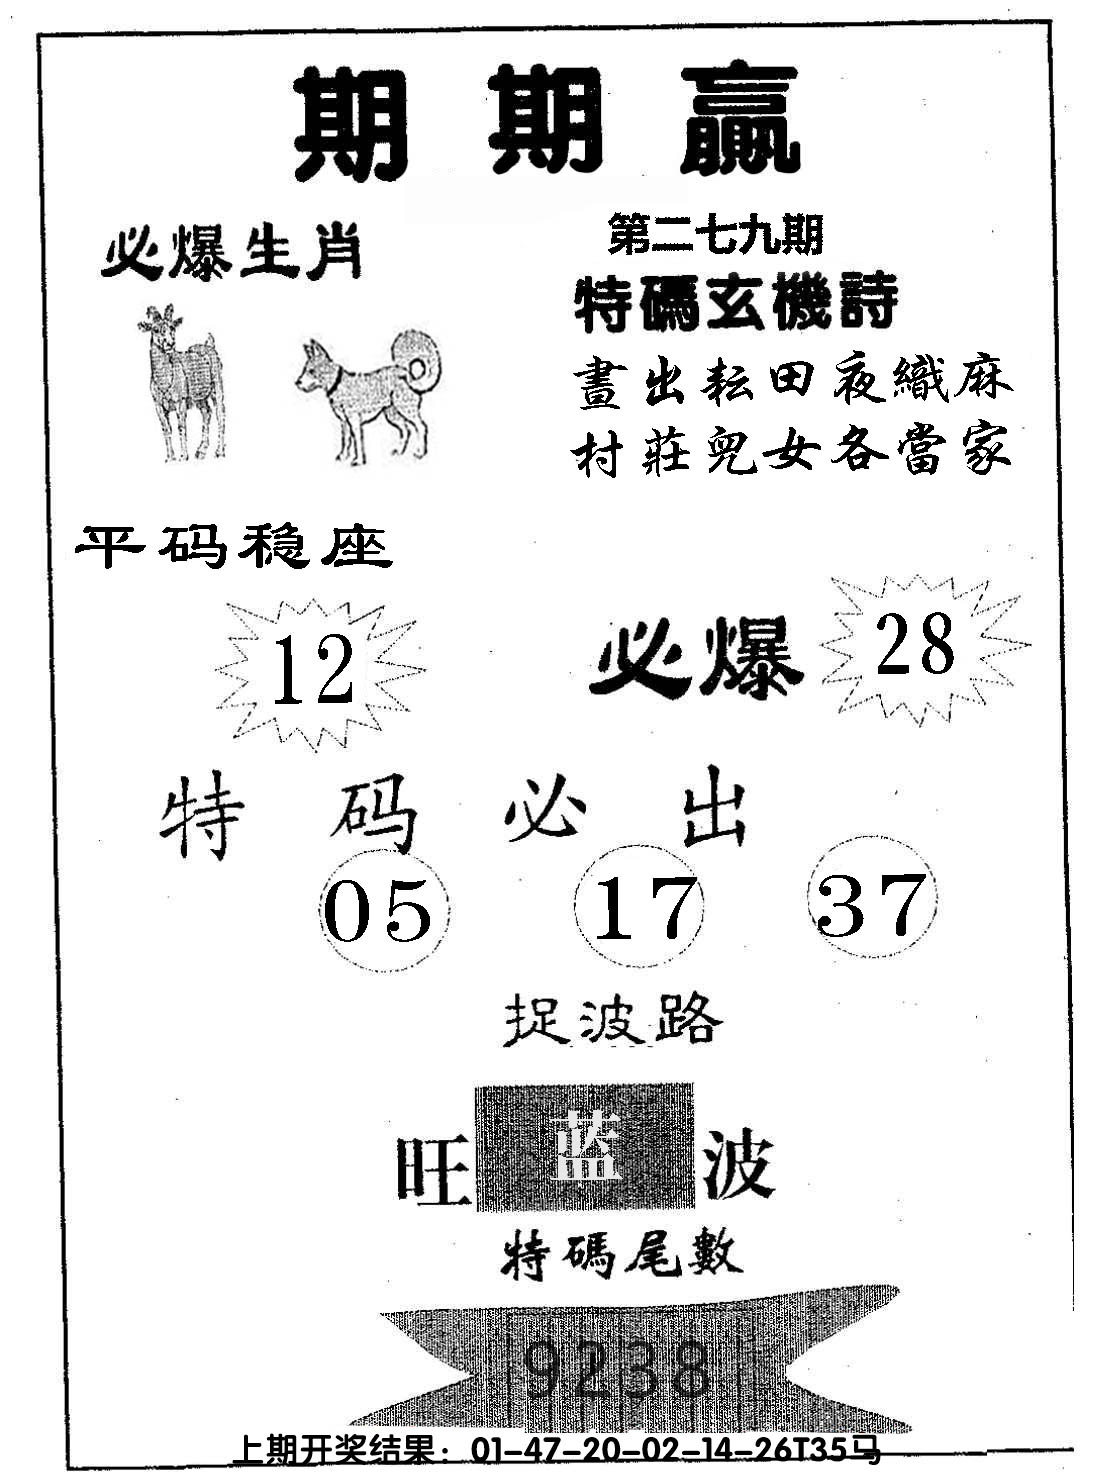 期期赢
必爆生肖
第二七九期
特碼玄機詩
晝出耘田夜織麻
村莊兒女各當家
平码稳座
12
必爆
28
特码必出
05 17 37
捉波路
旺蓝波
特碼尾數
9238
上期开奖结果：01-47-20-02-14-26T35马